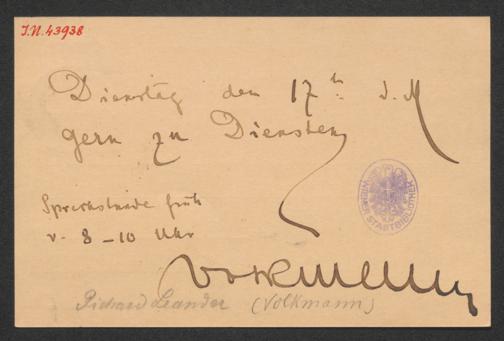 I.N. 43938
Dienstag den 17ten d. M
gern zu Diensten
Sprechstunde früh
v. 8 - 10 Uhr
Volkmann
WIENER STADTBIBLIOTHEK
Richard Leander (Volkmann)